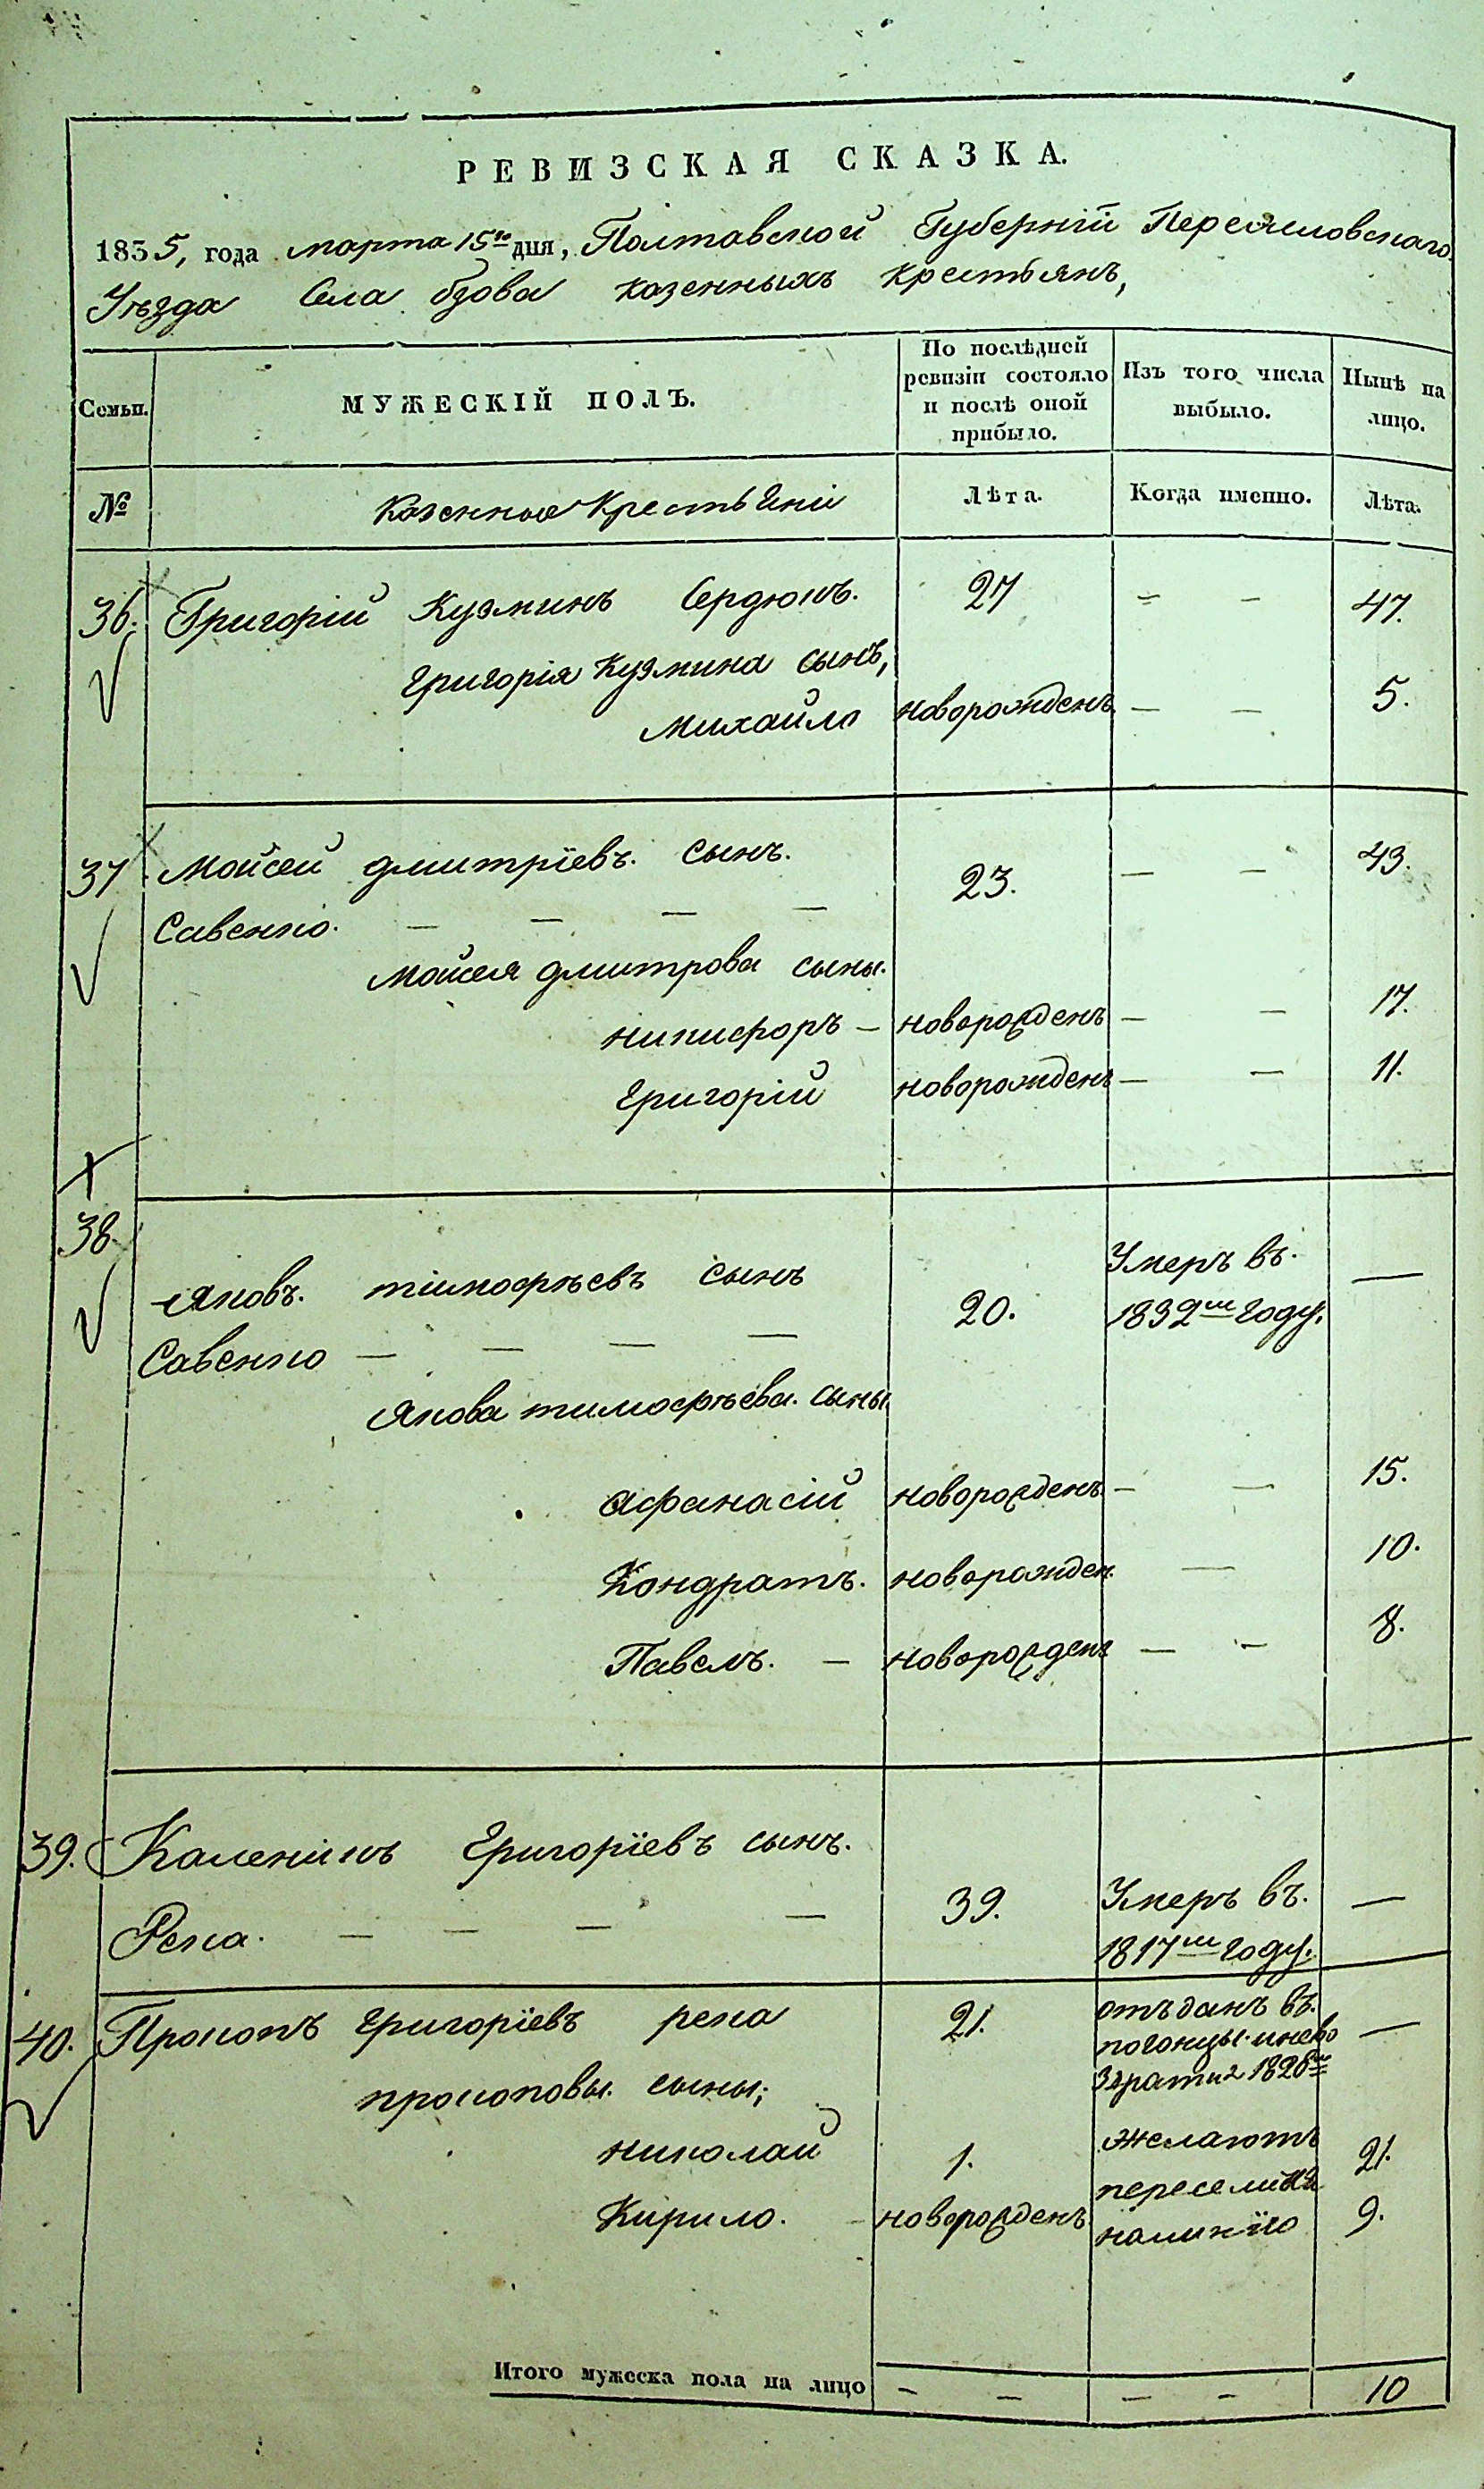 РЕВИЗСКАЯ СКАЗКА.
1835, года марта 15го дня, Полтавской Губерніи Переясловскаго
Уѣзда Села бзова казенныхъ крестьянъ,
Семьи. МУЖЕСКІЙ ПОЛЪ. По послѣдней ревизіи состояло и послѣ оной прибыло. Изъ того числа выбыло. Нынѣ на лицо.
№ Казенные Крестьяни Лѣта. Когда именно. Лѣта.
36. Григорій Кузминъ Сердюкъ. 27 — — 47.
Григорія Кузмина сынъ,
михайло новорожденъ — — 5.
37 Мойсей дмитріевъ. сынъ. 23. — — 43.
Савенко. — — — —
мойсея дмитрова сыны.
никифоръ — новорожденъ — — 17.
Григорій новорожденъ — — 11.
38. Яковъ. тімофѣевъ сынъ 20. Умеръ въ. 1832м году. —
Савенко — — — —
Якова тимофѣева. сыны
афанасій новорожденъ. — — 15.
Кондратъ. новорожден. — 10.
Павелъ. — новорожденъ — — 8.
39. Каленикъ Григорїевъ сынъ.
Река. — — — — 39. Умеръ въ. 1817м году. —
40. Прокопъ Григорїевъ река 21. отъданъ въ. погонцы —
прокоповы. сыны;
николай 1. желаютъ 21.
Кирило. — новорожденъ 9.
Итого мужеска пола на лицо — — — — 10